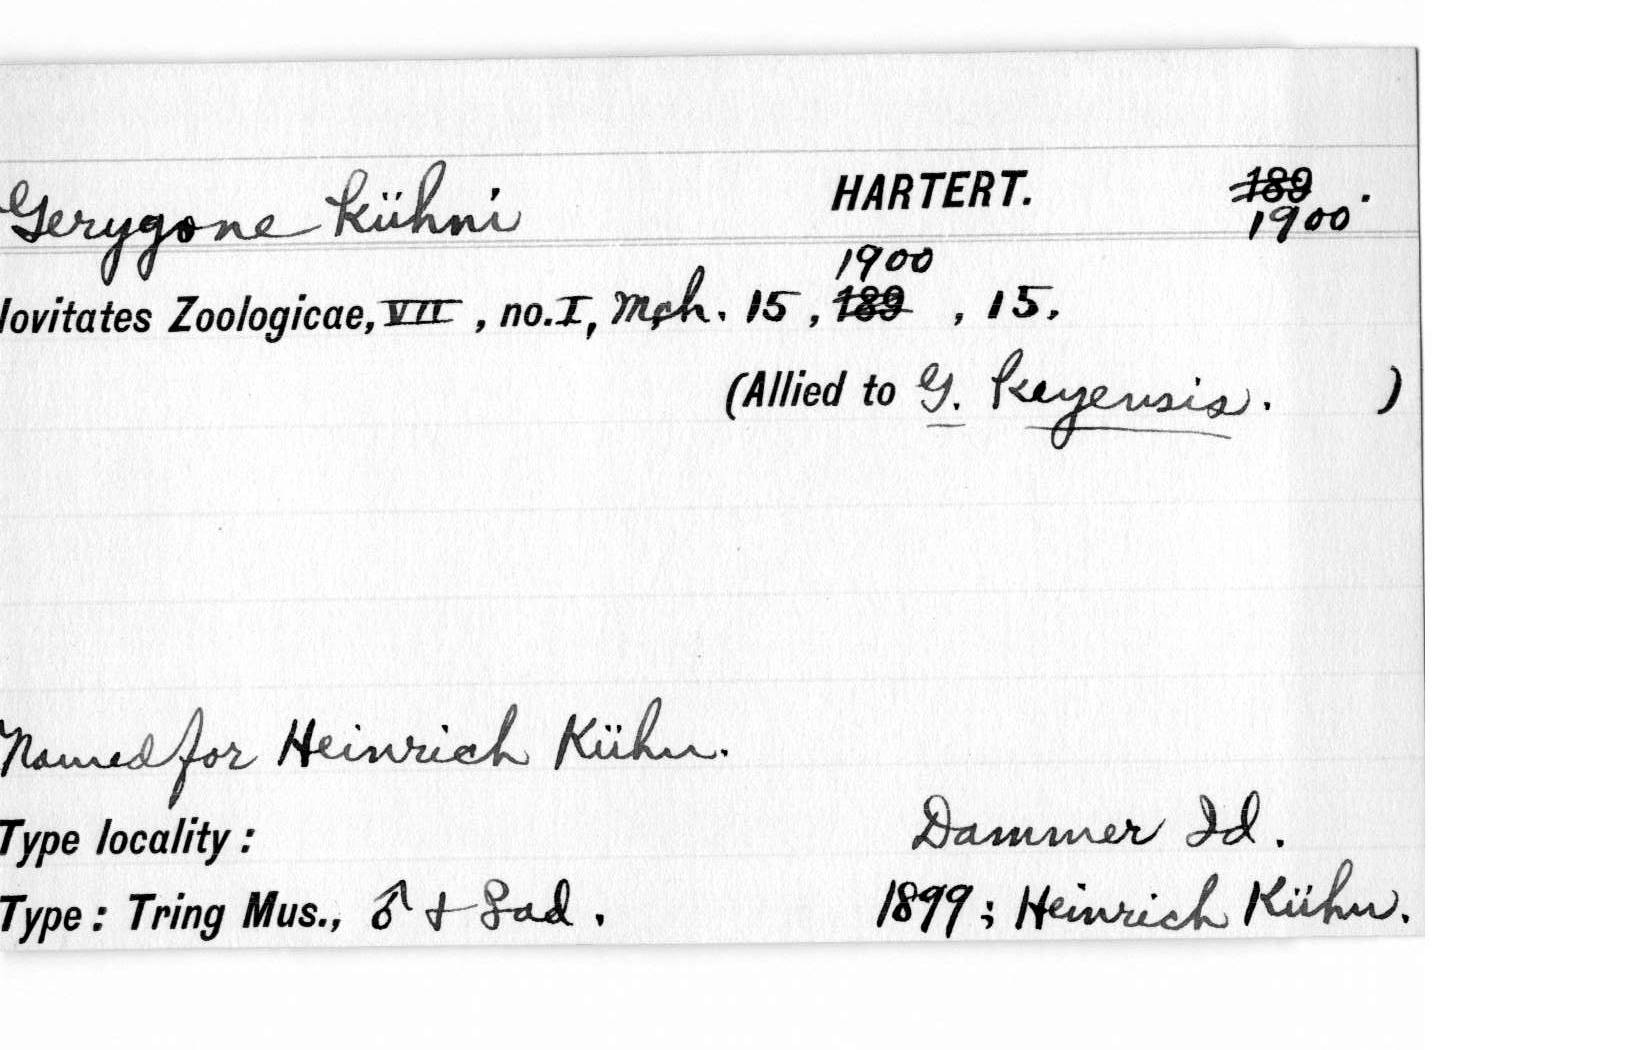 Gerygone kühni HARTERT. 189 .
1900
1900
Novitates Zoologicae, VII , no. I, Mch. 15 , 189 , 15.
(Allied to G. keyensis. )
Named for Heinrich Kühn.
Type locality : Dammer Id.
Type : Tring Mus., ♂ + ♀ ad. 1899 ; Heinrich Kühn.